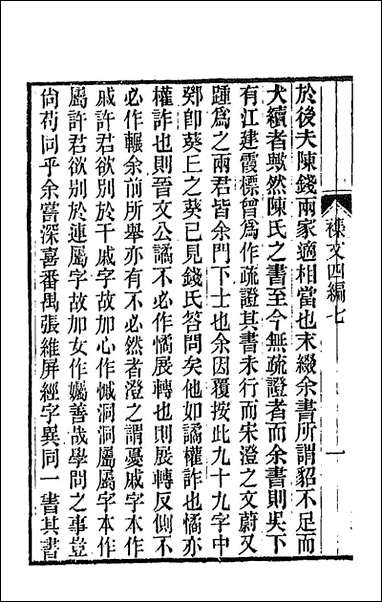 於後夫陳錢兩家適相當也末綴余書所謂貂不足而
犬續者歟然陳氏之書至今無疏證者而余書則吳下
有江建霞標曾爲作疏證其書未行而宋澄之文蔚又
踵爲之兩君皆余門下士也余因覆按此九十九字中
鄈卽葵丘之葵已見錢氏答問矣他如譎權詐也憰亦
權詐也則晉文公譎不必作憰展轉也則展轉反側不
必作輾余前所舉亦有不必然者澄之謂憂戚字本作
戚許君欲別於干戚字故加心作慽洞洞屬屬字本作
屬許君欲別於連屬字故加女作孎善哉學問之事豈
尙苟同乎余嘗深喜番禺張維屏經字異同一書其書
襍文四編七
一